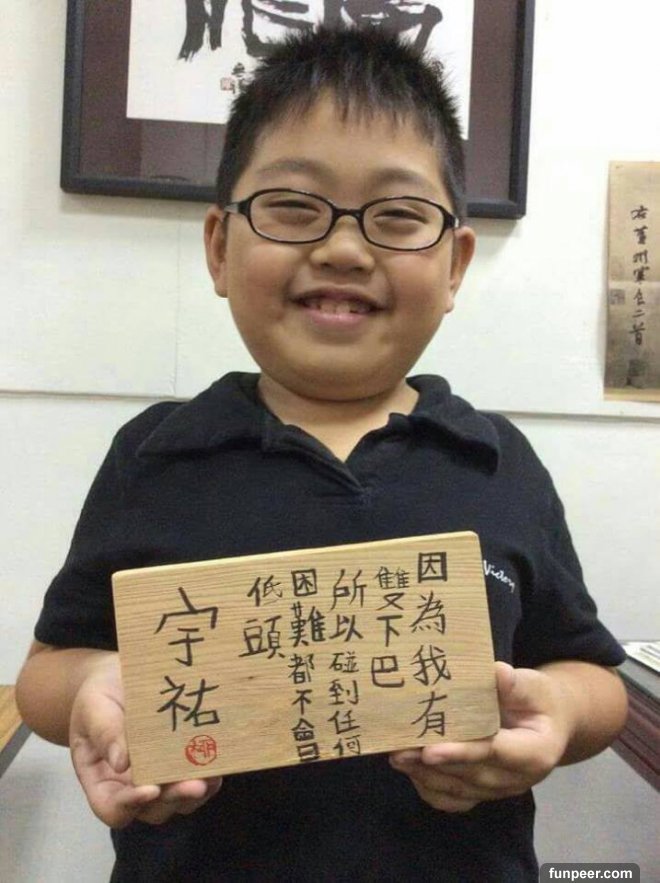 因為我有
雙下巴
所以碰到任何
困難都不會
低頭
宇祐
Victory
右黃州寒食二首
funpeer.com